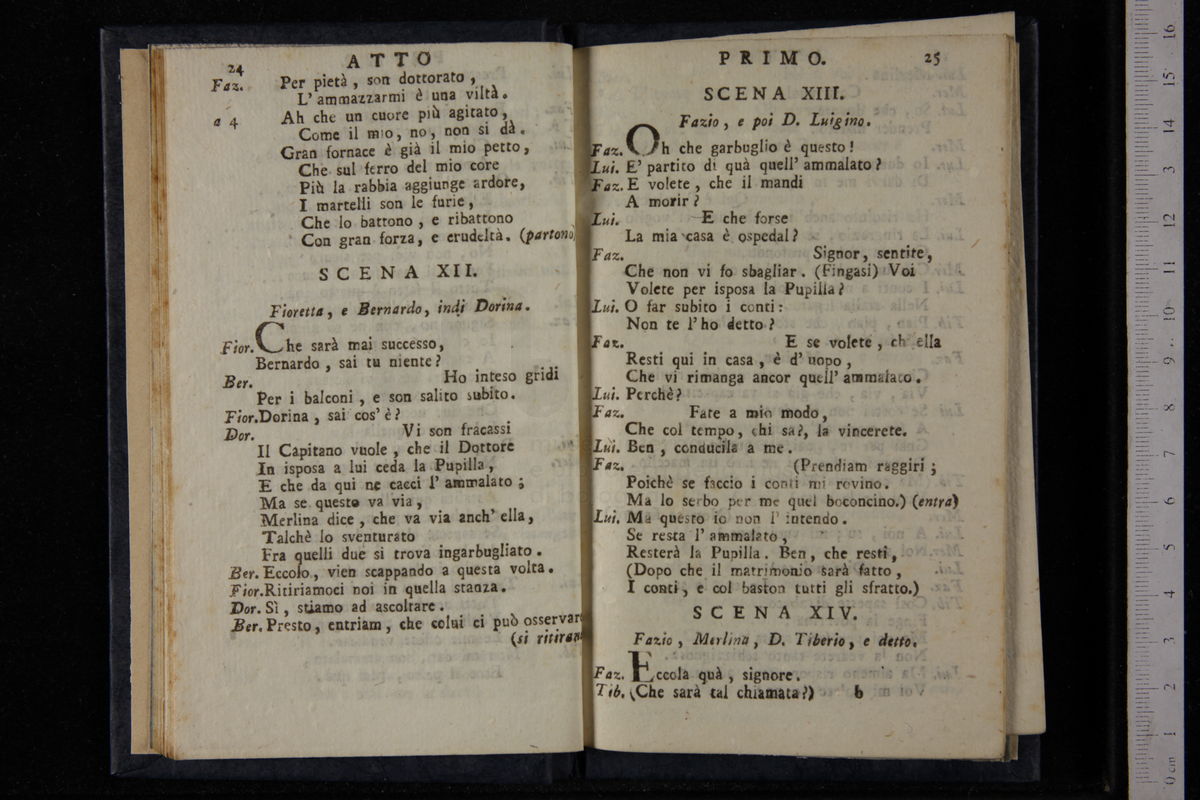 24
ATTO
Faz. Per pietà, son dottorato,
L'ammazzarmi è una viltà.
a 4 Ah che un cuore più agitato,
Come il mio, no, non si dà.
Gran fornace è già il mio petto,
Che sul ferro del mio core
Più la rabbia aggiunge ardore,
I martelli son le furie,
Che lo battono, e ribattono
Con gran forza, e crudeltà. (partono)
SCENA XII.
Fioretta, e Bernardo, indi Dorina.
Fior. Che sarà mai successo,
Bernardo, sai tu niente?
Ber. Ho inteso gridi
Per i balconi, e son salito subito.
Fior. Dorina, sai cos' è?
Dor. Vi son fracassi
Il Capitano vuole, che il Dottore
In isposa a lui ceda la Pupilla,
E che da qui ne cacci l' ammalato;
Ma se questo va via,
Merlina dice, che va via anch' ella,
Talchè lo sventurato
Fra quelli due si trova ingarbugliato.
Ber. Eccolo, vien scappando a questa volta.
Fior. Ritiriamoci noi in quella stanza.
Dor. Sì, stiamo ad ascoltare.
Ber. Presto, entriam, che colui ci può osservar
(si ritiran
PRIMO. 25
SCENA XIII.
Fazio, e poi D. Luigino.
Faz. Oh che garbuglio è questo!
Lui. E' partito di quà quell' ammalato?
Faz. E volete, che il mandi
A morir?
Lui. E che forse
La mia casa è ospedal?
Faz. Signor, sentite,
Che non vi fo sbagliar. (Fingasi) Voi
Volete per isposa la Pupilla?
Lui. O far subito i conti:
Non te l'ho detto?
Faz. E se volete, ch' ella
Resti qui in casa, è d' uopo,
Che vi rimanga ancor quell' ammalato.
Lui. Perchè?
Faz. Fate a mio modo,
Che col tempo, chi sa?, la vincerete.
Lui. Ben, conducila a me.
Faz. (Prendiam raggiri;
Poichè se faccio i conti mi rovino.
Ma lo serbo per me quel boconcino.) (entra)
Lui. Ma questo io non l' intendo.
Se resta l' ammalato,
Resterà la Pupilla. Ben, che resti,
(Dopo che il matrimonio sarà fatto,
I conti, e col baston tutti gli sfratto.)
SCENA XIV.
Fazio, Merlina, D. Tiberio, e detto.
Faz. Eccola quà, signore.
Tib. (Che sarà tal chiamata?) b
0 cm 1 2 3 4 5 6 7 8 9 10 11 12 13 14 15 16